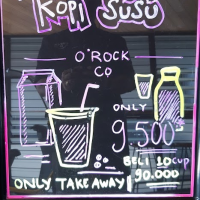 KOPI SUSU
O'ROCK
CO
ONLY
9.500
BELI 10 CUP
90.000
ONLY TAKE AWAY!